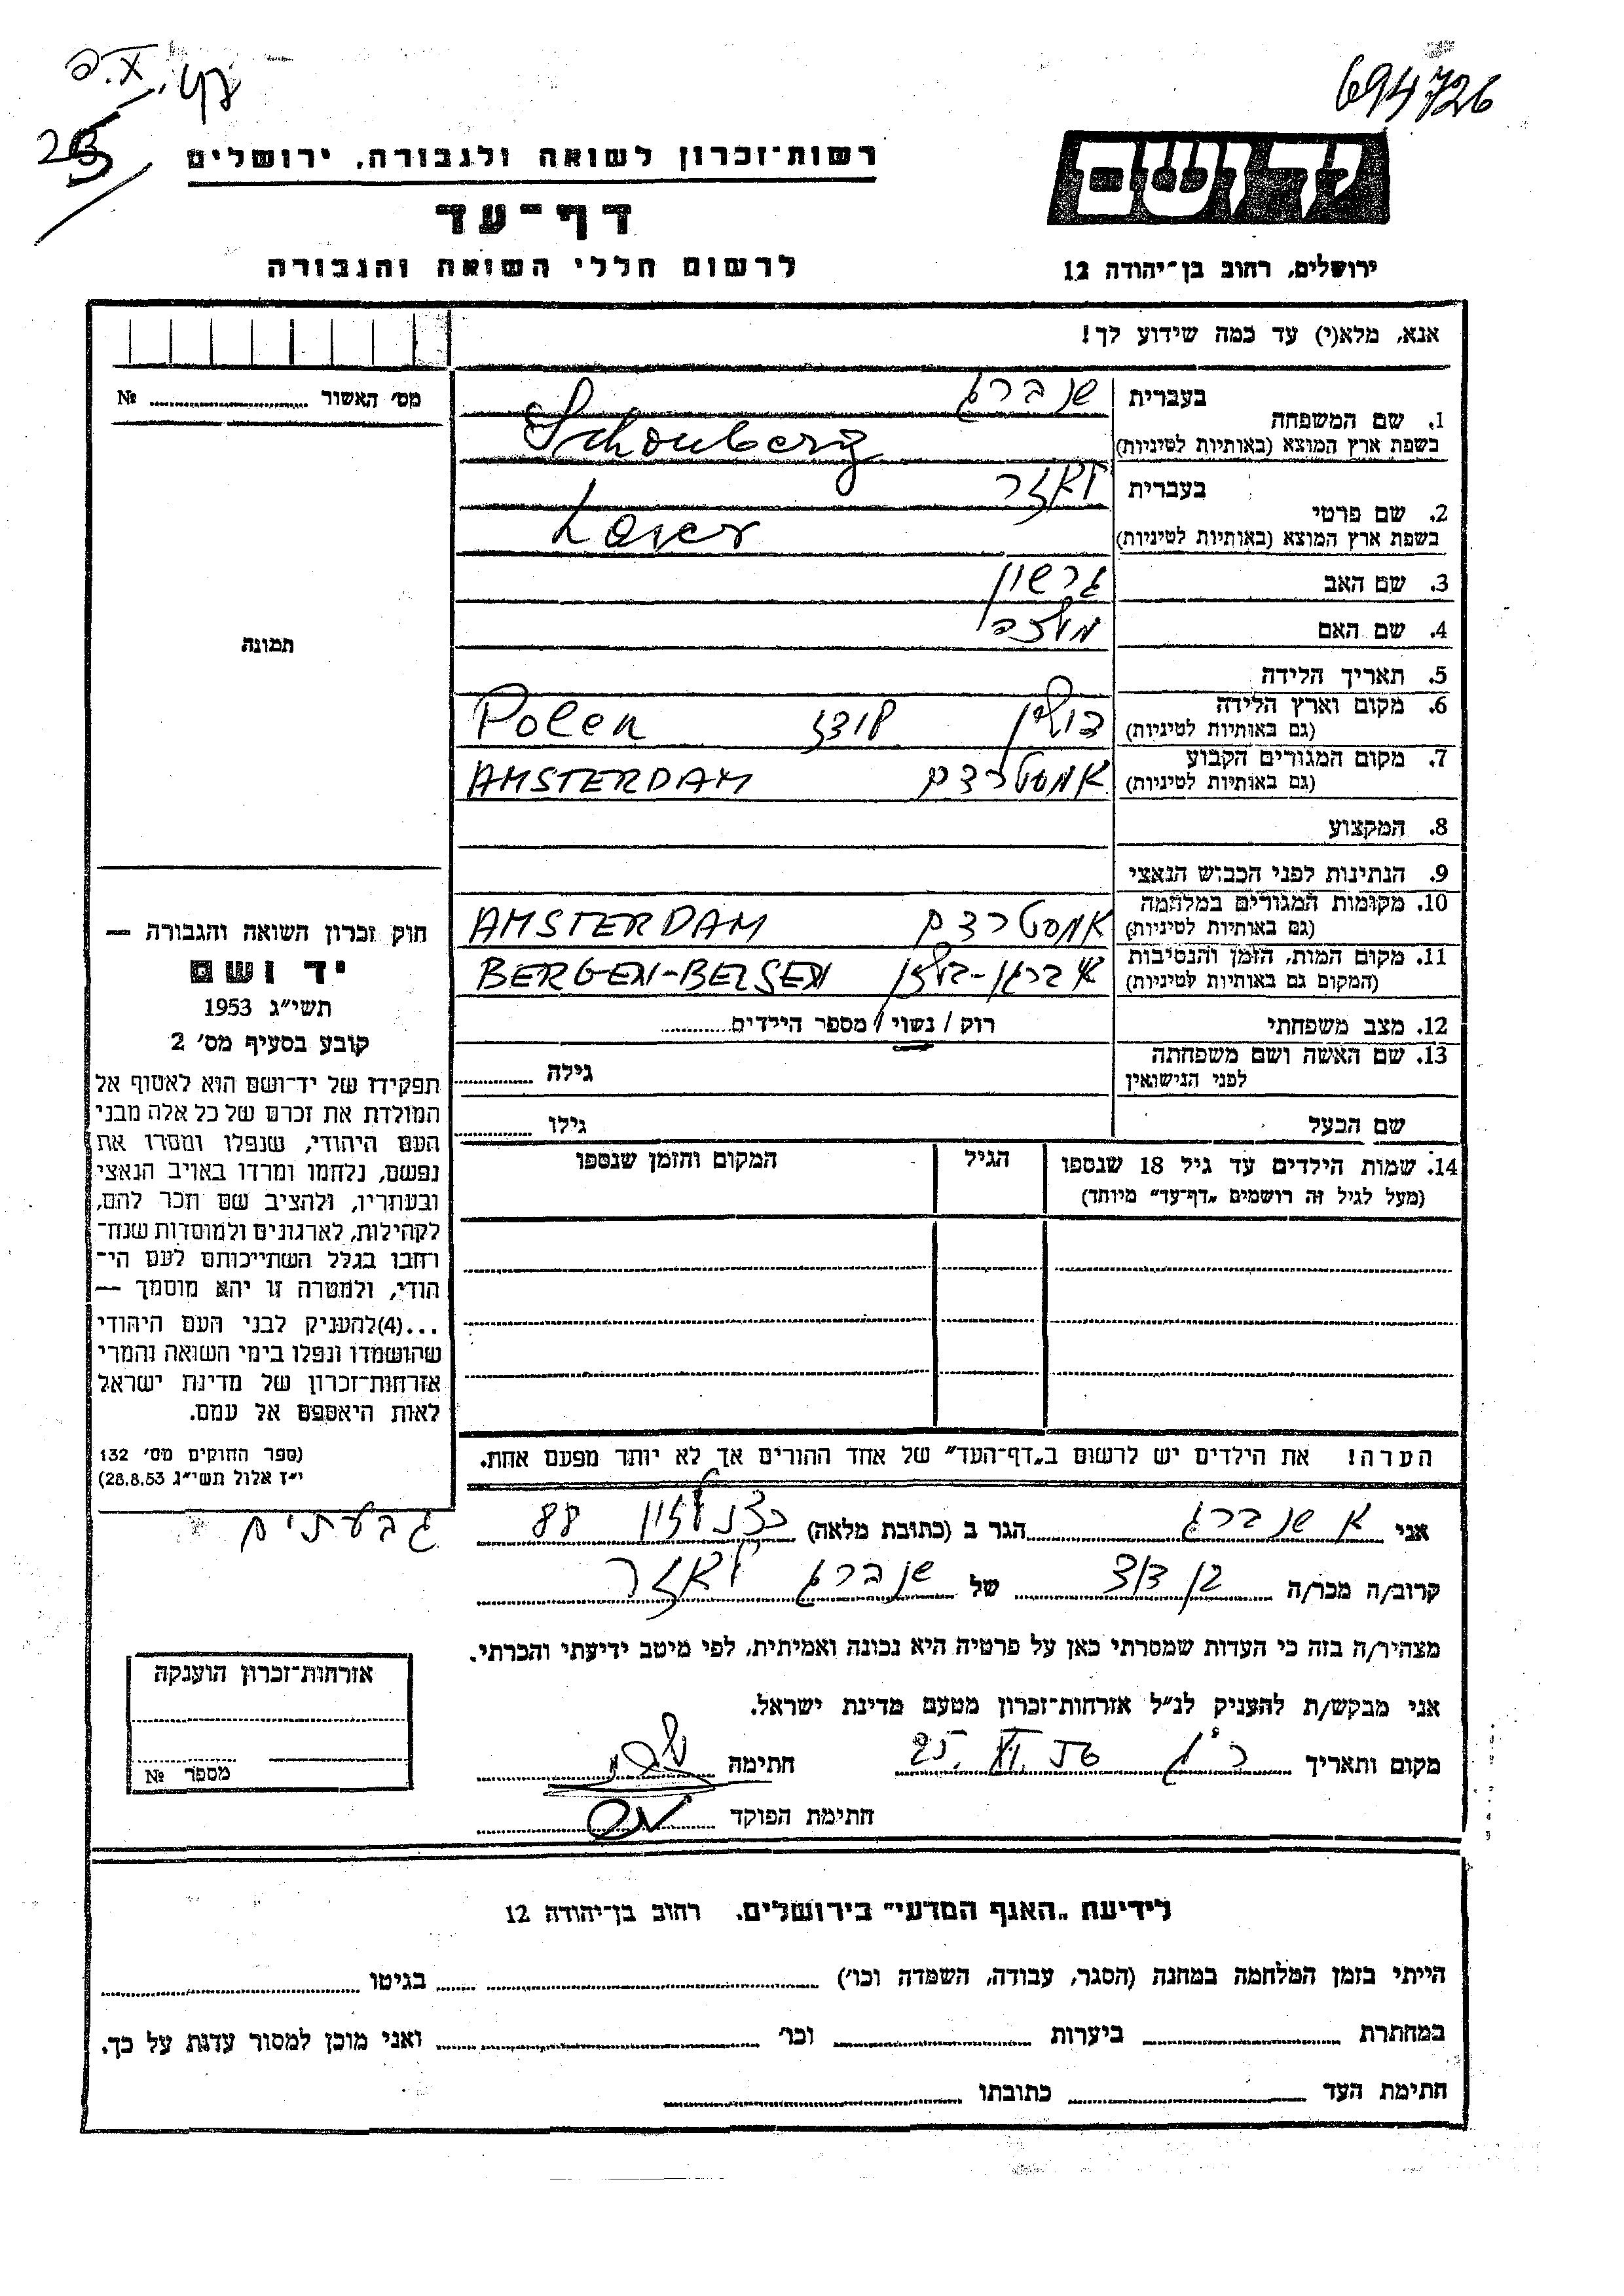 694726
רשות־זכרון לשואה ולגבורה, ירושלים
יד ושם
דף־עד
לרשום חללי השואה והגבורה
ירושלים, רחוב בן־יהודה 12
אנא, מלא(י) עד כמה שידוע לך!
מס׳ האשור № ..........
1. שם המשפחה בעברית שנברג
בשפת ארץ המוצא (באותיות לטיניות) Schonberg
2. שם פרטי בעברית לאזר
בשפת ארץ המוצא (באותיות לטיניות) Laser
3. שם האב גרשון
4. שם האם
5. תאריך הלידה
6. מקום וארץ הלידה פולין לודז Polen
(גם באותיות לטיניות)
7. מקום המגורים הקבוע אמסטרדם AMSTERDAM
(גם באותיות לטיניות)
8. המקצוע
9. הנתינות לפני הכבוש הנאצי
10. מקומות המגורים במלחמה אמסטרדם AMSTERDAM
(גם באותיות לטיניות)
11. מקום המות, הזמן והנסיבות ברגן-בלזן BERGEN-BELSEN
(המקום גם באותיות לטיניות)
12. מצב משפחתי רוק / נשוי / מספר הילדים..........
13. שם האשה ושם משפחתה לפני הנישואין גילה ..........
שם הבעל גילו ..........
14. שמות הילדים עד גיל 18 שנספו הגיל המקום והזמן שנספו
(מעל לגיל זה רושמים „דף־עד” מיוחד)
תמונה
חוק זכרון השואה והגבורה —
יד ושם
תשי״ג 1953
קובע בסעיף מס׳ 2
תפקידו של יד־ושם הוא לאסוף אל
המולדת את זכרם של כל אלה מבני
העם היהודי, שנפלו ומסרו את
נפשם, נלחמו ומרדו באויב הנאצי
ובעוזריו, ולהציב שם וזכר להם,
לקהילות, לארגונים ולמוסדות שנח־
רחבו בגלל השתייכותם לעם הי־
הודי, ולמטרה זו יהא מוסמך —
...(4)להעניק לבני העם היהודי
שהושמדו ונפלו בימי השואה והמרי
אזרחות־זכרון של מדינת ישראל
לאות היאספם אל עמם.
(ספר החוקים מס׳ 132
י״ז אלול תשי״ג 28.8.53)
הערה! את הילדים יש לרשום ב„דף־העד” של אחד ההורים אך לא יותר מפעם אחת.
אני א שנברג הגר ב (כתובת מלאה) כצנלסון 88 גבעתים
קרוב/ה מכר/ה בן דוד של שנברג לאזר
מצהיר/ה בזה כי העדות שמסרתי כאן על פרטיה היא נכונה ואמיתית, לפי מיטב ידיעתי והכרתי.
אני מבקש/ת להעניק לנ״ל אזרחות־זכרון מטעם מדינת ישראל.
מקום ותאריך חתימה
חתימת הפוקד
אזרחות־זכרון הוענקה
מספר №
לידיעת „האגף המדעי” בירושלים, רחוב בן־יהודה 12
הייתי בזמן המלחמה במחנה (הסגר, עבודה, השמדה וכו׳) .......... בגיטו ..........
במחתרת .......... ביערות .......... וכו׳ .......... ואני מוכן למסור עדות על כך.
חתימת העד .......... כתובתו ..........